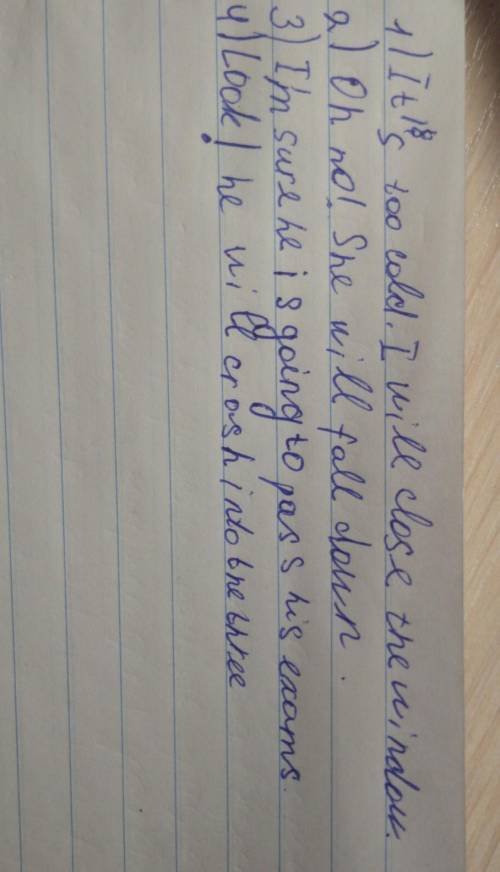 1) It's too cold. I will close the window.
2) Oh no! She will fall down.
3) I'm sure he is going to pass his exams.
4) Look! he will crash into the three